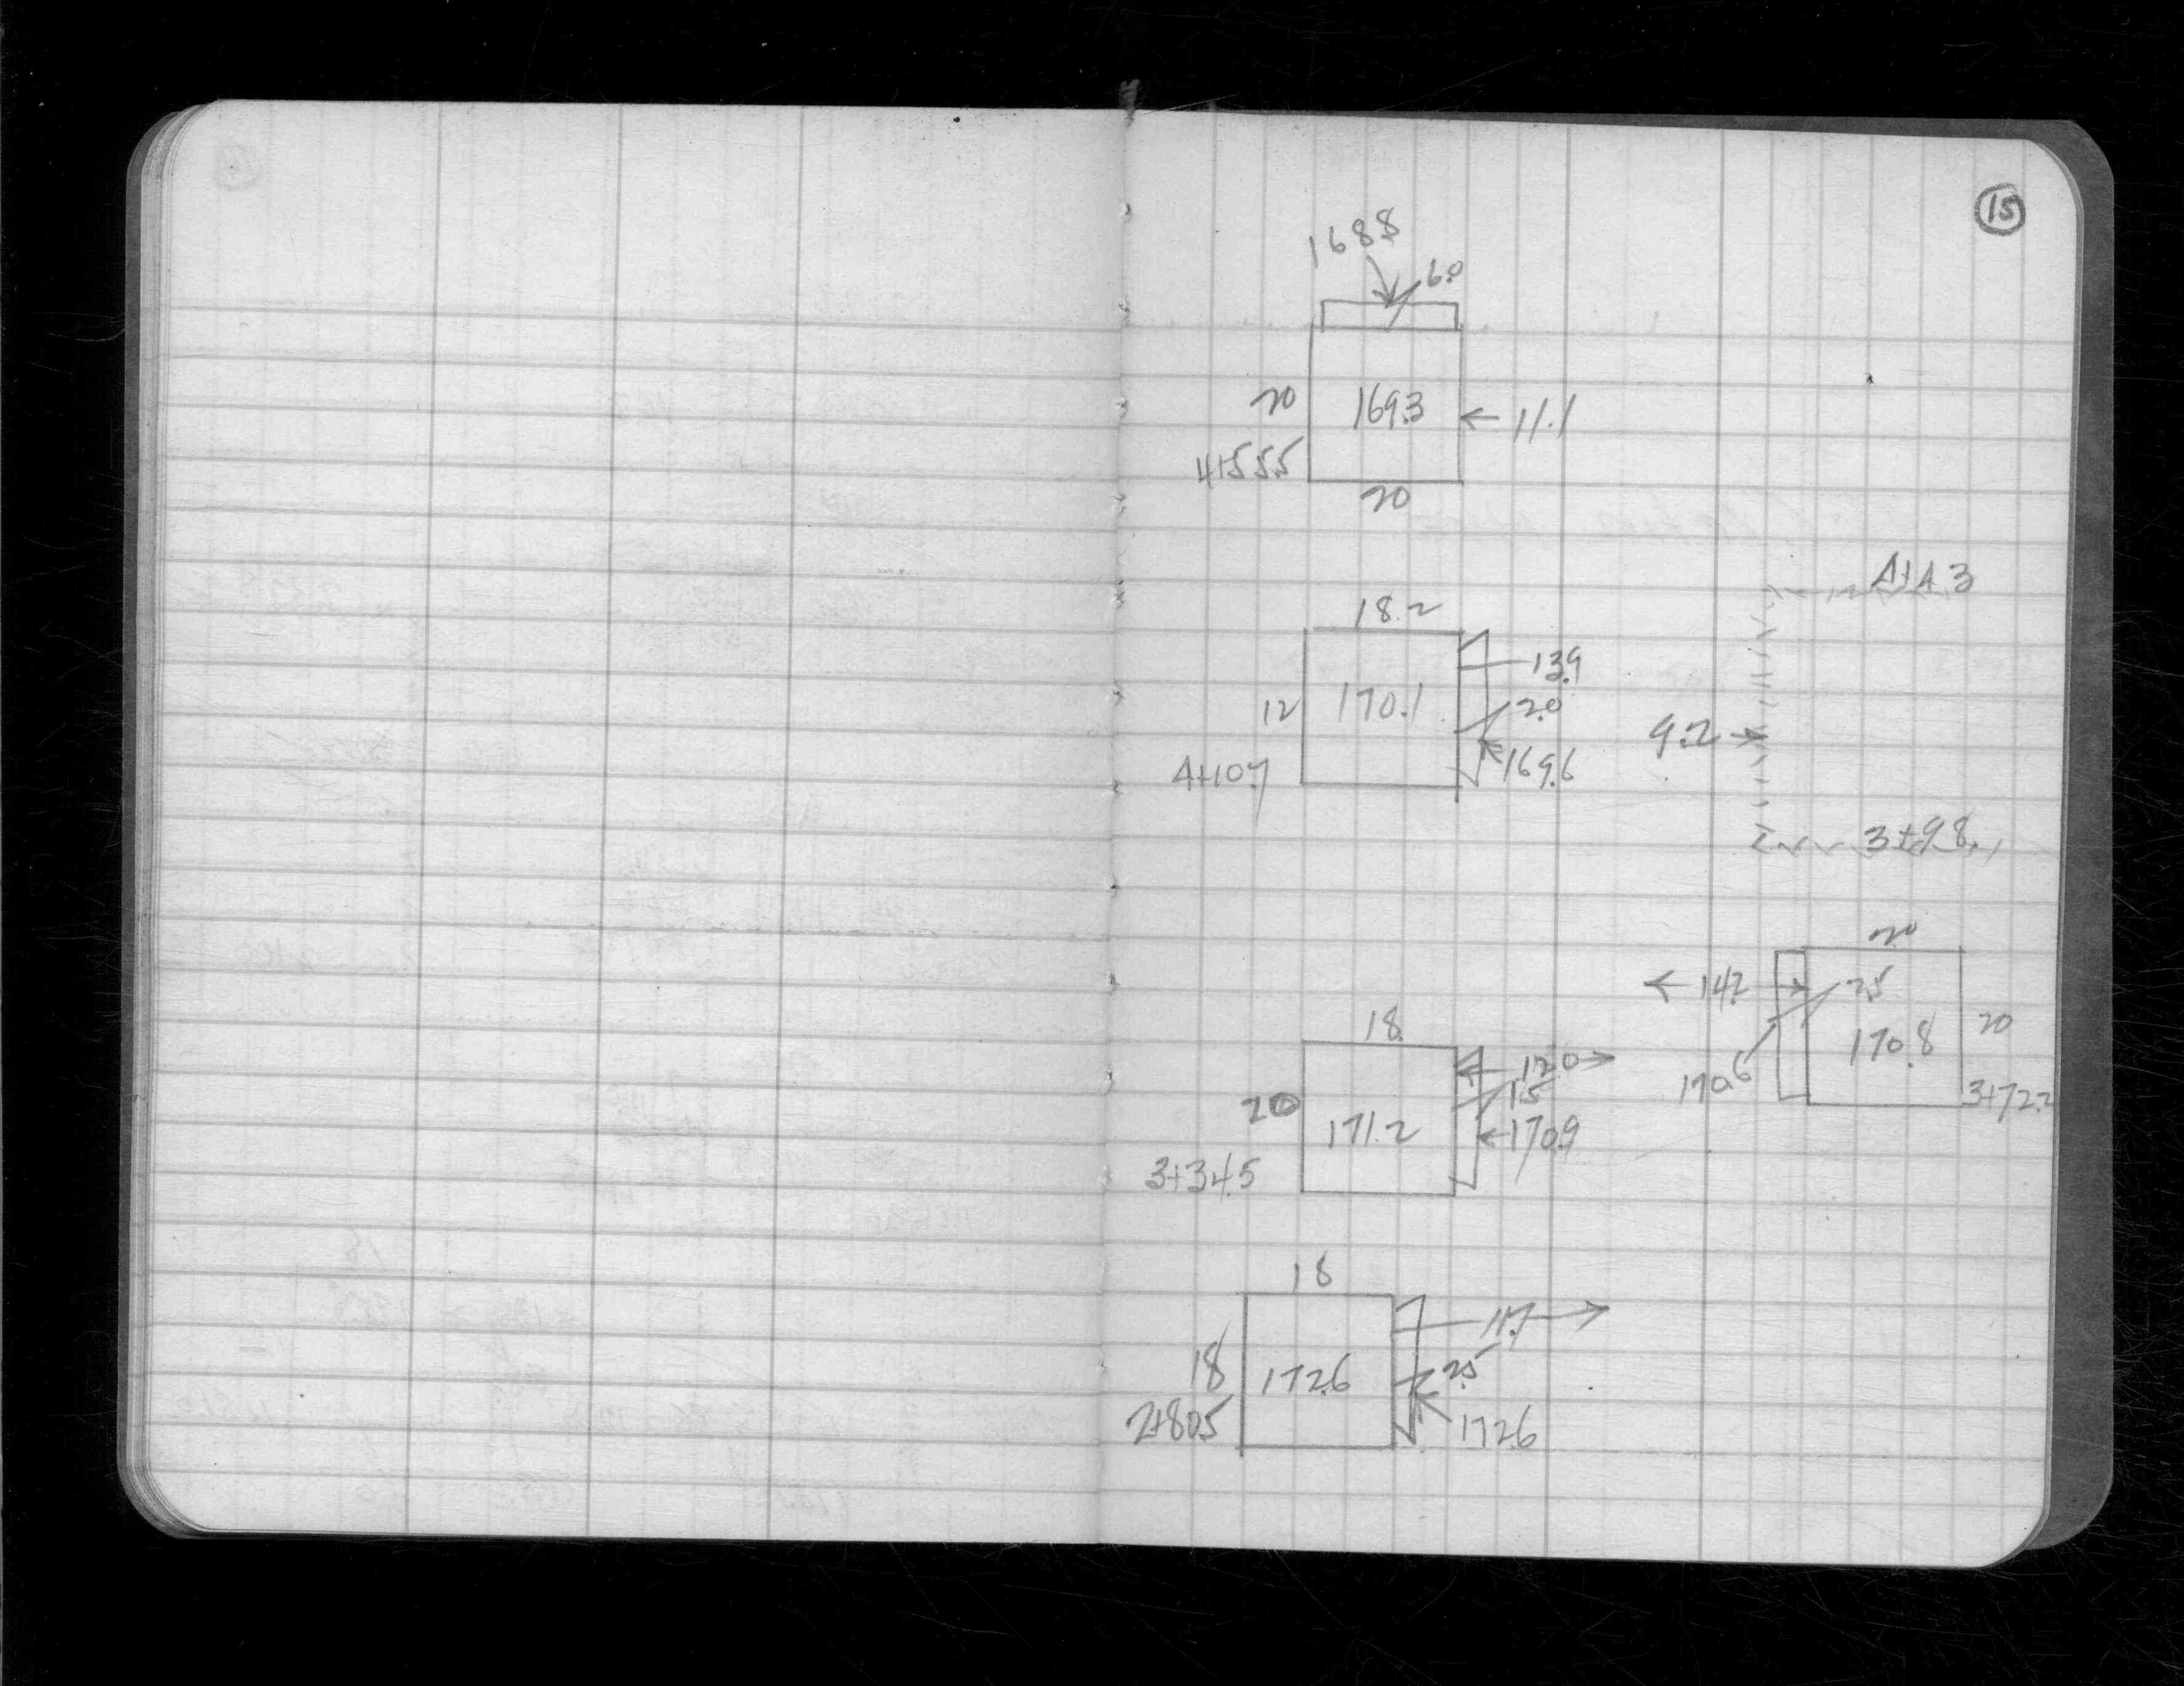 15
168.8
6.0
20
169.3
11.1
4+55.5
20
4+4.3
18.2
13.9
12
170.1
2.0
9.2
4+10.7
169.6
3+98.
20
14.2
2.5
20
18.
170.8
12.0
170.6
20
1.5
3+72.2
171.2
170.9
3+34.5
18
11.7
18
172.6
2.5
2+80.5
172.6